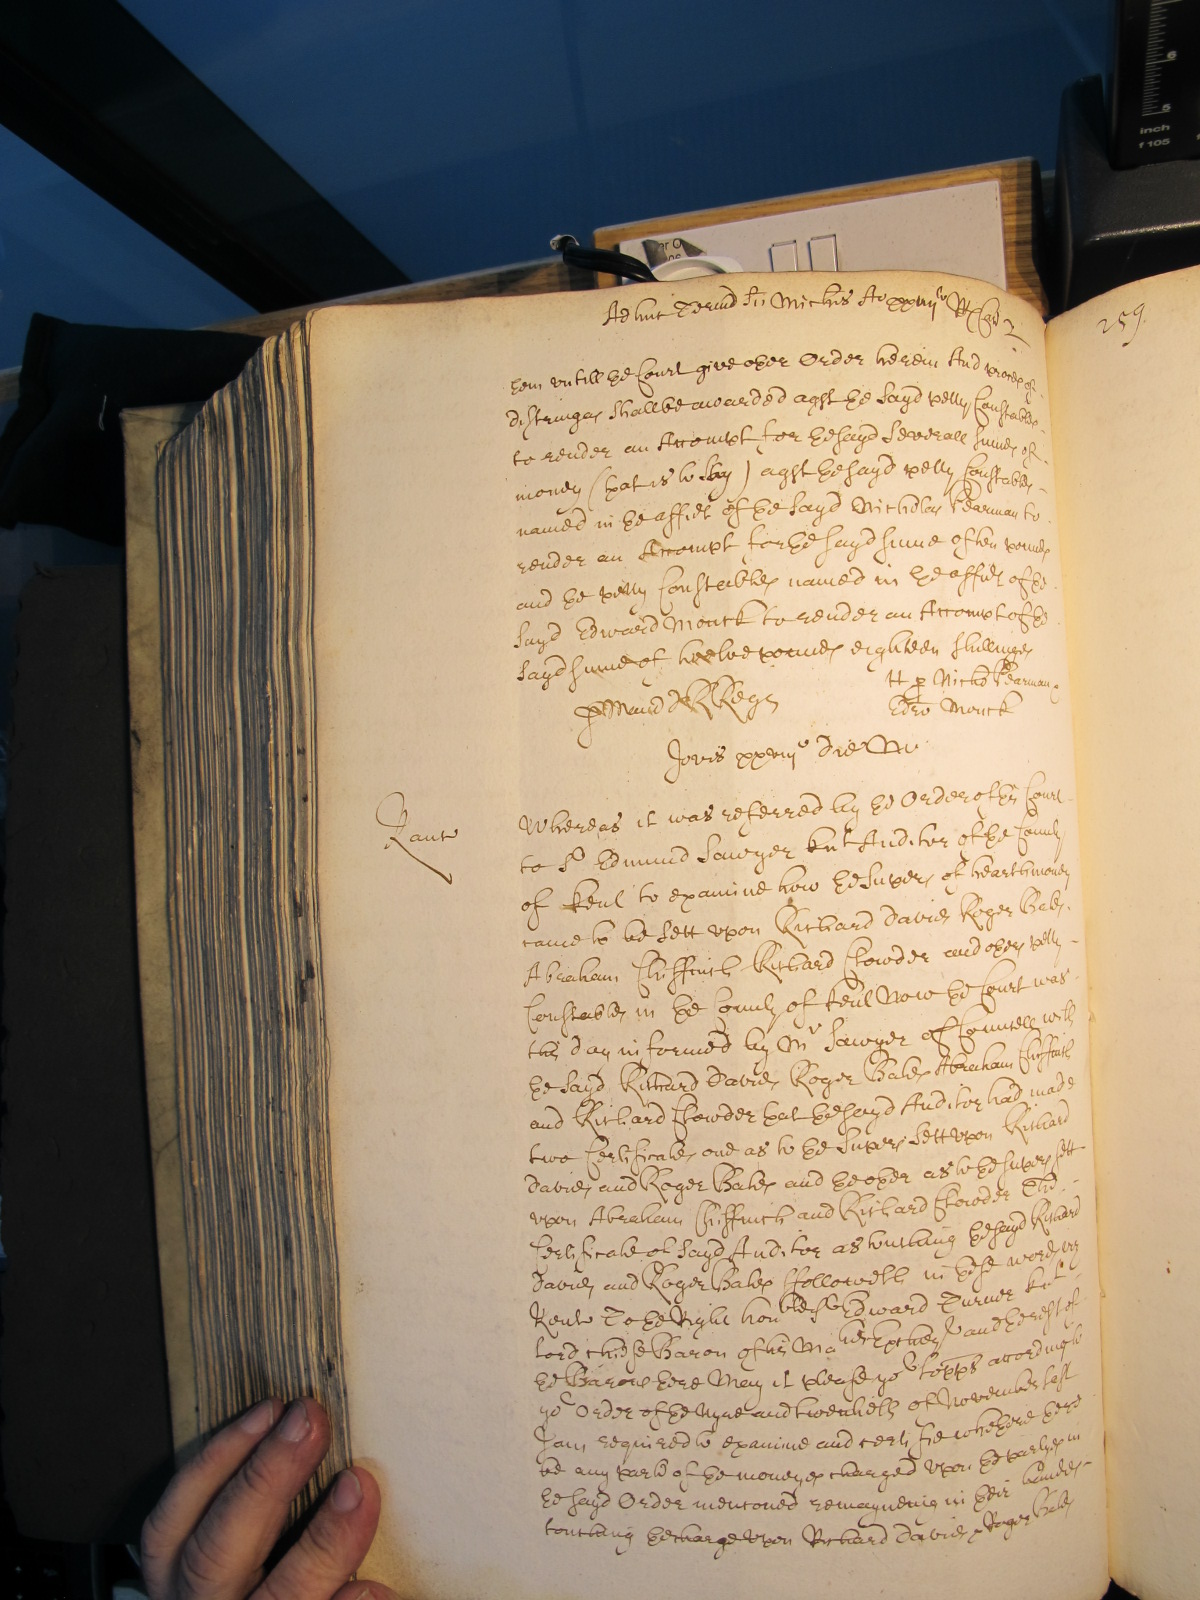 Adhuc Termd Sci Michis Ao xxiiijto R Car 2
259
hem untill the Court give other Order herein And proces of
distringas shallbe awarded agst the sayd petty Constables
to render an Accompt for the sayd severall summes of
money (that is to say) agst the sayd petty Constables
named in the affidt of the sayd Nicholas Pearman to
render an Accompt for the sayd summe of ten pounds
and the petty Constables named in the affidt of the
sayd Edward Monck to render an Accompt of the
sayd summe of twelve pounds eighteen shillinges
H p Nichd Pearman
Edro Monck
Jovis xxviijo die
Kanc
Whereas it was referred by the Order of this Court
to Sr Edmund Sawyer knt Auditor of the County
of Kent to examine how the Supers of hearthmoney
came to be sett upon Richard Davies Roger Bates
Abraham Chiffinch Richard Crowder and other petty
Constables in the County of Kent Now the Court was
this day informed by Mr Sawyer of Councell with
the sayd Richard Davies Roger Bates Abraham Chiffinch
and Richard Crowder that the sayd Auditor had made
two Certificates one as to the Supers sett upon Richard
Davies and Roger Bates and the other as to the supers sett
upon Abraham Chiffinch and Richard Crowder The
Certificate of sayd Auditor as touching the sayd Richard
Davies and Roger Bates followeth in these words viz
Kent To the Right honble Sr Edward Turnor knt
Lord chiefe Baron of his Mats Excheqr and the rest of
the Barons there May it please yor Lopps according to
yor Order of the Nyne and twentieth of November last
I am required to examine and certifie whether there
be any parte of the moneyes charged upon the partyes in
the sayd Order mencioned remayneing in their handes
touching the charge upon Richard Davies & Roger Bates
inch
f 105
6
5